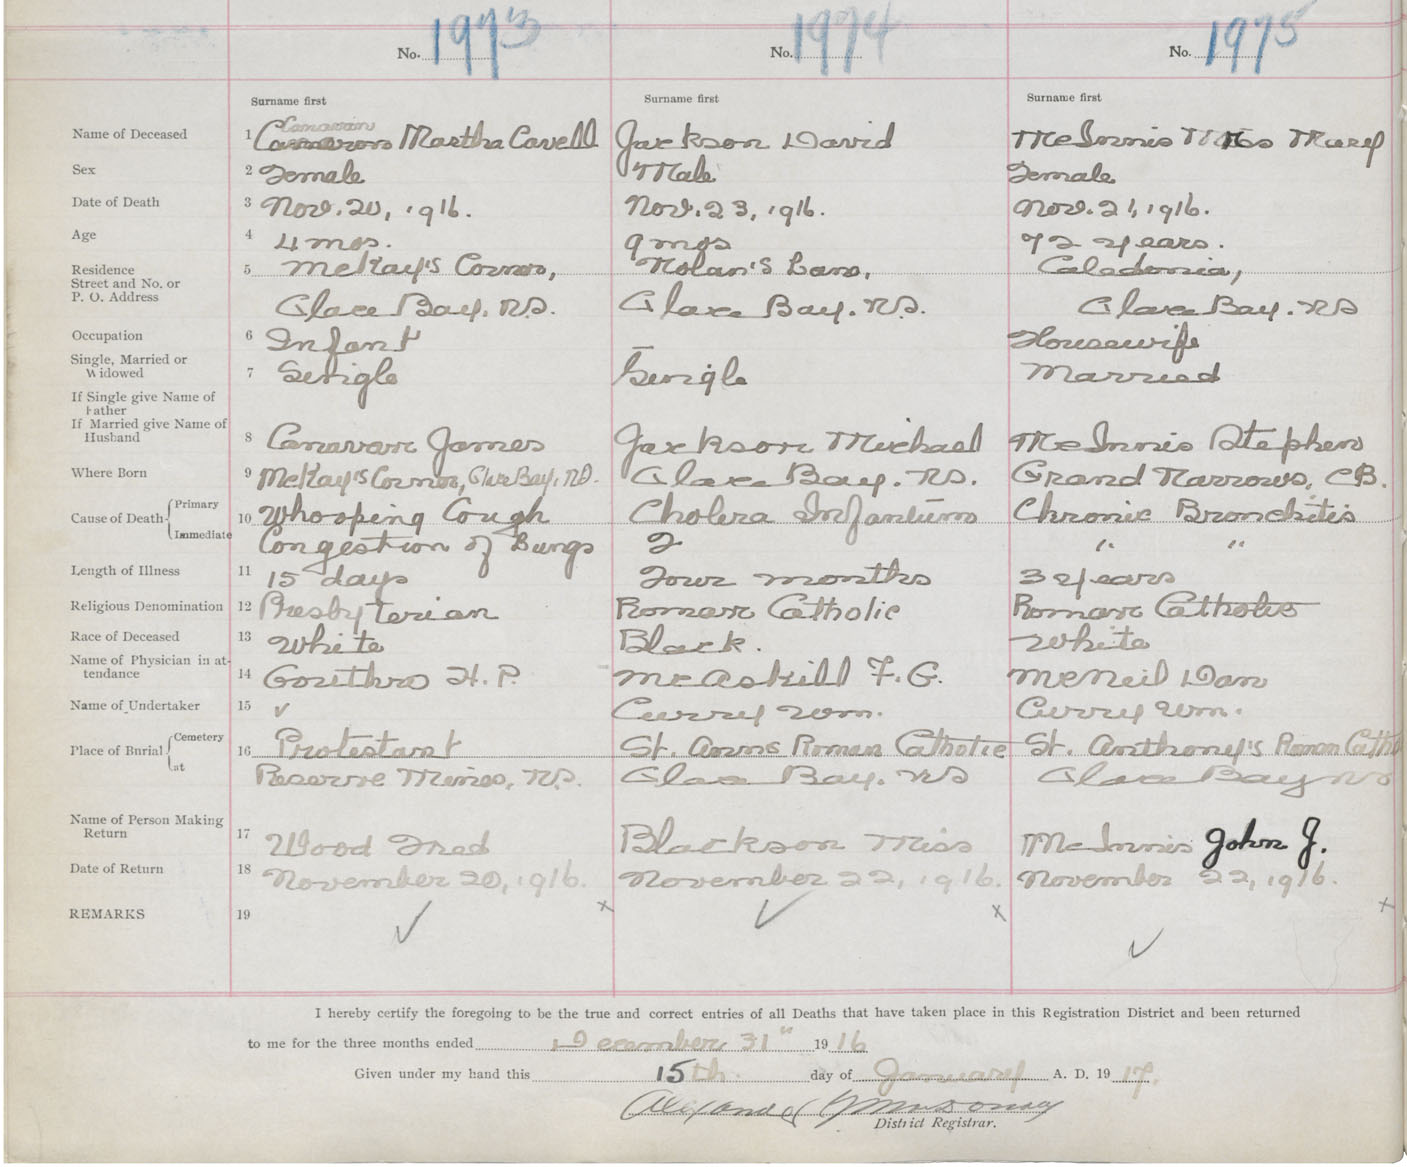 No. 1973 No. 1974 No. 1975
Surname first Surname first Surname first
Canavan
Name of Deceased 1 Cameron Martha Cavell Jackson David McInnis Mrs Mary
Sex 2 Female Male Female
Date of Death 3 Nov. 20, 1916. Nov. 23, 1916. Nov. 21, 1916.
Age 4 4 mos. 9 mos 72 years.
Residence 5 McKay's Corner, Nolan's Lane, Caledonia,
Street and No. or
P. O. Address Glace Bay. N.S. Glace Bay. N.S. Glace Bay. NS
Occupation 6 Infant – Housewife
Single, Married or
Widowed 7 Single Single Married
If Single give Name of
Father
If Married give Name of
Husband 8 Canavan James Jackson Michael McInnis Stephen
Where Born 9 McKay's Corner, Glace Bay. N.S. Glace Bay. N.S. Grand Narrows, C.B.
Cause of Death Primary 10 Whooping Cough Cholera Infantum Chronic Bronchitis
Immediate Congestion of Lungs ? " "
Length of Illness 11 15 days Four months 3 years
Religious Denomination 12 Presbyterian Roman Catholic Roman Catholic
Race of Deceased 13 White Black. White
Name of Physician in at-
tendance 14 Gouthro H. P. McAskill F. G. McNeil Dan
Name of Undertaker 15 ✓ Curry Wm. Curry Wm.
Place of Burial Cemetery 16 Protestant St. Anns Roman Catholic St. Anthony's Roman Catho
at Reserve Mines, N.S. Glace Bay. NS Glace Bay NS
Name of Person Making
Return 17 Wood Fred Blackson Miss McInnis John J.
Date of Return 18 November 20, 1916. November 22, 1916. November 22, 1916.
REMARKS 19 ✓ x ✓ x ✓ x
I hereby certify the foregoing to be the true and correct entries of all Deaths that have taken place in this Registration District and been returned
to me for the three months ended December 31" 19 16
Given under my hand this 15th day of January A. D. 19 17.
District Registrar.